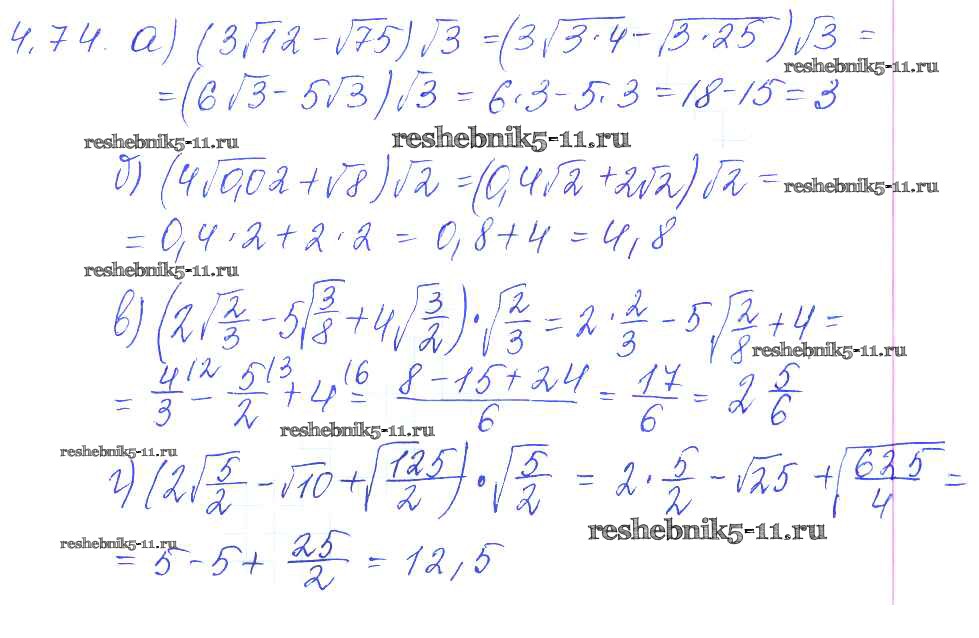 4.74. а) (3√12 - √75)√3 = (3√3·4 - √3·25)√3 =
reshebnik5-11.ru
= (6√3 - 5√3)√3 = 6·3 - 5·3 = 18 - 15 = 3
reshebnik5-11.ru
reshebnik5-11.ru
б) (4√0,02 + √8)√2 = (0,4√2 + 2√2)√2 =
reshebnik5-11.ru
= 0,4·2 + 2·2 = 0,8 + 4 = 4,8
reshebnik5-11.ru
в) (2√2/3 - 5√3/8 + 4√3/2)·√2/3 = 2·2/3 - 5√2/8 + 4 =
reshebnik5-11.ru
= 4/3 (2 - 5/2 (3 + 4 (6 = 8 - 15 + 24/6 = 17/6 = 2 5/6
reshebnik5-11.ru
reshebnik5-11.ru
г) (2√5/2 - √10 + √125/2)·√5/2 = 2·5/2 - √25 + √625/4 =
reshebnik5-11.ru
reshebnik5-11.ru
= 5 - 5 + 25/2 = 12,5